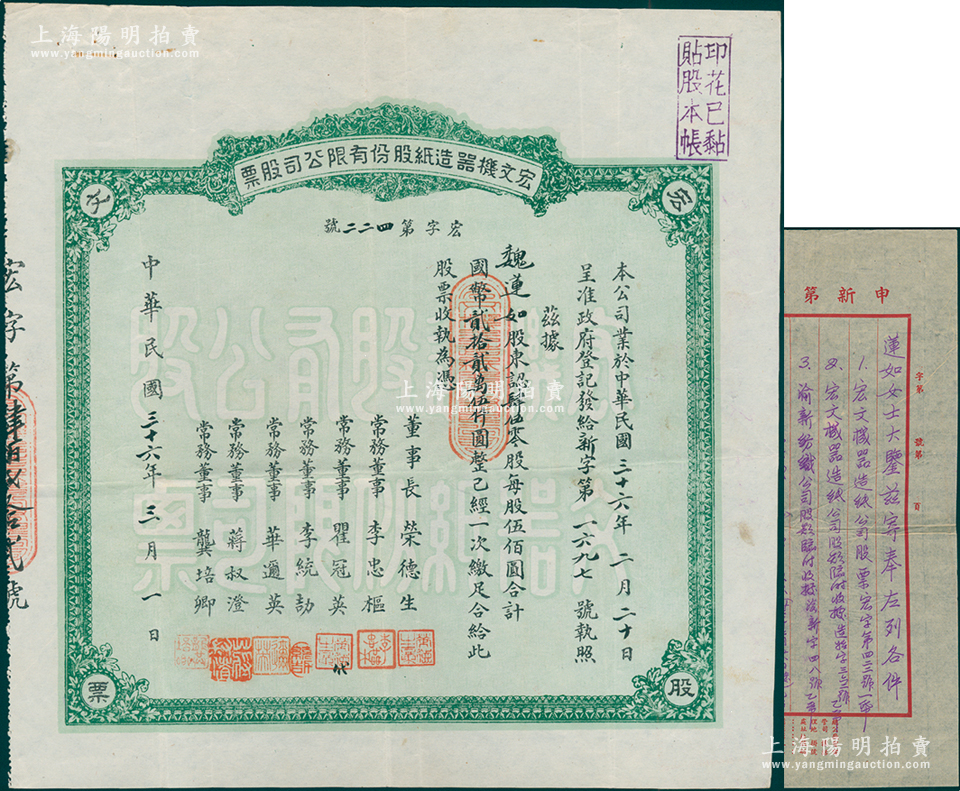 上海陽明拍賣
www.yangmingauction.com
印花已黏
貼股本帳
宏文機器造紙股份有限公司股票
宏字第四二二號
本公司業於中華民國三十六年二月二十日
呈准政府登記發給新字第一六九七號執照
茲據
魏蓮如股東認購伍零股每股伍佰圓合計
國幣貳拾貳萬伍仟圓整已經一次繳足合給此
股票收執為憑
董事長 榮德生
常務董事 李忠樞
常務董事 瞿冠英
常務董事 李統劼
常務董事 華遹英
常務董事 蔣叔澄
常務董事 龔培卿
中華民國三十六年三月一日
代
宏
股
票
宏字第肆百貳拾貳號
上海陽明拍賣
www.yangmingauction.com
申新第
字第
號第
頁
蓮如女士大鑒茲寄奉左列各件
1.宏文機器造紙公司股票宏字第四二二號一紙
2.宏文機器造紙公司股款臨時收據造始字三二號乙
3.渝新紡織公司股款臨時收據渝新字四八號乙
上海陽明拍賣
www.yangmingauction.com